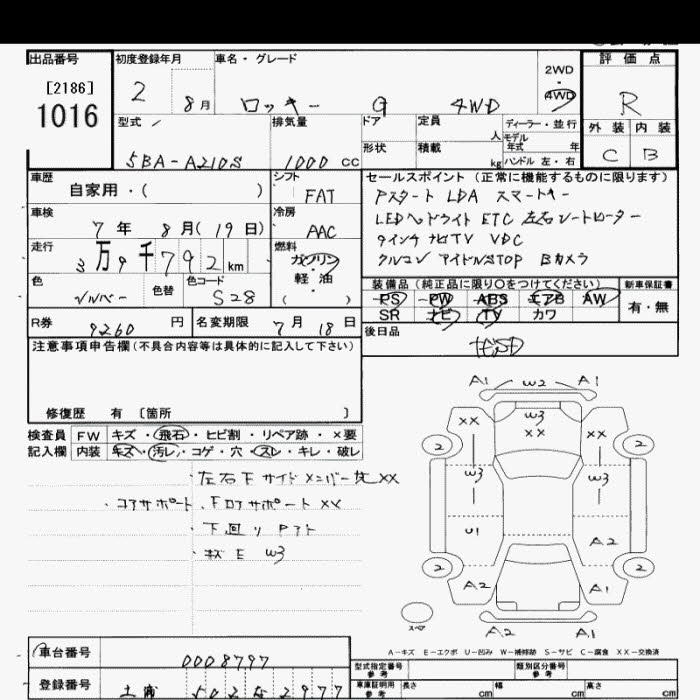 出品番号 初度登録年月 車名・グレード 評価点
[2186]
1016
2 8月 ロッキー G 4WD
2WD
・
4WD
R
型式 排気量 ドア 定員 人 ディーラー・並行
モデル
年式 年
形状 積載 kg ハンドル 左・右
外装 内装
C B
5BA-A210S 1000 cc
車歴 自家用・( )
シフト FAT
セールスポイント (正常に機能するものに限ります)
Pスタート LDA スマートキー
LEDヘッドライト ETC 左右シートヒーター
9インチナビTV VDC
クルコン アイドルSTOP Bカメラ
車検 7年 8月( 19日)
冷房 AAC
走行 3万9千792km
燃料 ガソリン
・
軽油
( )
色 シルバー 色替 色コード S28
装備品 (純正品に限り○をつけてください) 新車保証書
PS PW ABS エアB AW
SR ナビ TV カワ
有・無
R券 9260円 名変期限 7月 18日
後日品
注意事項申告欄(不具合内容等は具体的に記入して下さい)
修復歴 有 [箇所 ]
検査員 FW キズ・飛石・ヒビ割・リペア跡・×要
記入欄 内装 キズ・汚レ・コゲ・穴・スレ・キレ・破レ
左右Fサイドメンバー先XX
・コアサポート、Fロアサポート XX
・下廻り Pアト
・キズ E W3
A1 W2 A1
XX W3 XX XX
2 2
W3 W3
U1 A2
2 2
A2 A1
スペア
A2 A1
A-キズ E-エクボ U-凹み W-補修跡 S-サビ C-腐食 XX-交換済
車台番号 0008797
型式指定番号 参考 類別区分番号 参考
登録番号 土浦 502 2977
車庫証明用 参考 長さ cm 幅 cm 高さ cm